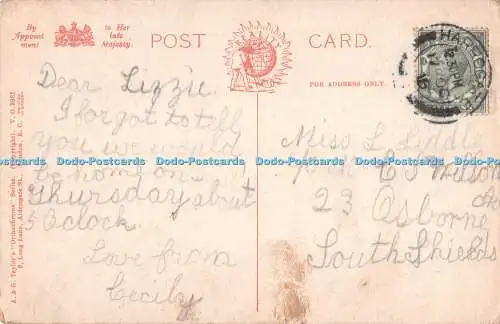 By Appointment
to Her Late Majesty.
POST CARD.
REALITY
FOR ADDRESS ONLY.
Dear Lizzie.
I forgot to tell
you we would
be home on
Thursday about
5 Oclock.
Love from
Cecily
Miss L Liddle
C J Wilson
23 Osborne Av
South Shields
HARROGATE
A. & G. Taylor's "Orthochrome" Series.
Long Lane, Aldersgate St.
Dodo-Postcards Dodo-Postcards Dodo-Postcards Dodo-Postcards Dodo-Postcards
Dodo-Postcards Dodo-Postcards Dodo-Postcards Dodo-Postcards Dodo-Postcards